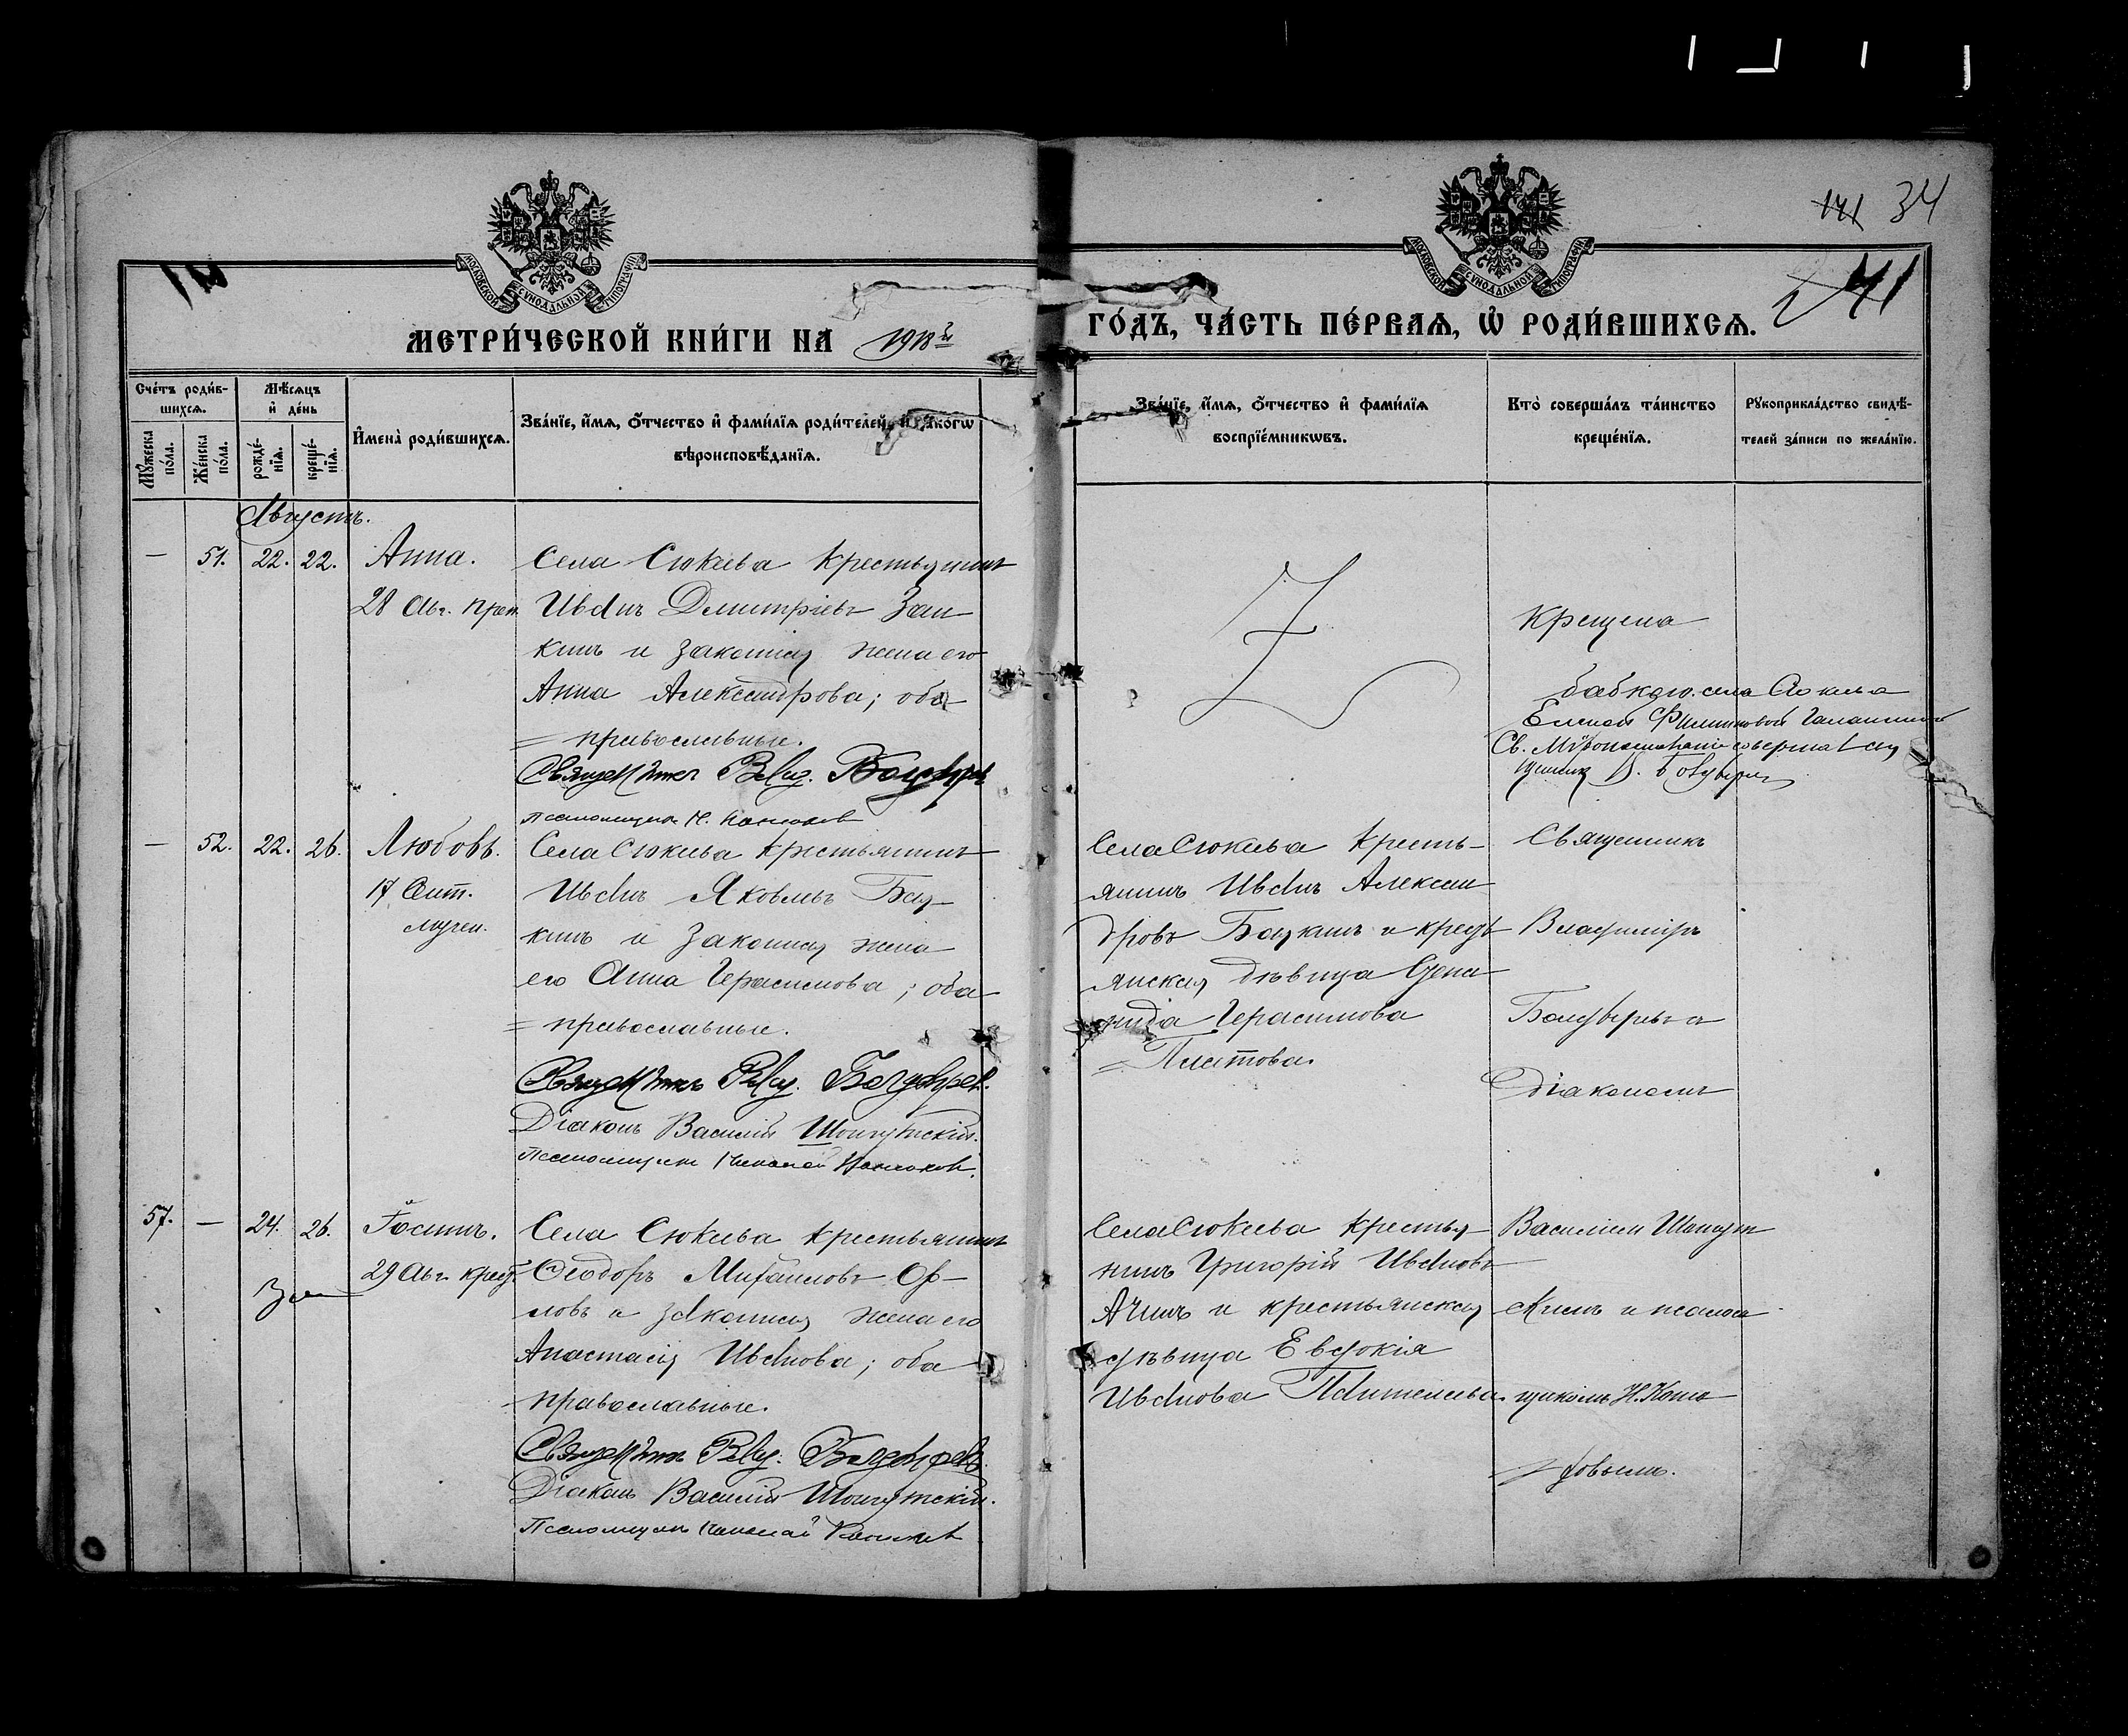 141 34
МОСКОВСКОЙ СѴНОДАЛЬНОЙ ТИПОГРАФІИ
МОСКОВСКОЙ СѴНОДАЛЬНОЙ ТИПОГРАФІИ
41
МЕТРИ́ЧЕСКОЙ КНИ́ГИ НА 1918й ГО́ДЪ, ЧА́СТЬ ПЕ́РВАѦ, Ѡ҆ РОДИ́ВШИХСѦ.
Сче́тъ роди́в-
шихсѧ.
Мꙋ́жеска по́ла.
Же́нска по́ла.
Мѣ́сѧцъ
и҆ де́нь
рожде́-
нїѧ.
креще́-
нїѧ.
И҆мена̀ роди́вшихсѧ.
Зва́нїе, и҆́мѧ, ѻ҆́тчество и҆ фами́лїѧ роди́телей, и҆ ꙗ҆ко́гѡ
вѣроисповѣ́данїѧ.
Зва́нїе, и҆́мѧ, ѻ҆́тчество и҆ фами́лїѧ
воспрїе́мникѡвъ.
Кто̀ соверша́лъ та́инство
креще́нїѧ.
Рꙋкоприкла́дство свидѣ́-
телей за́писи по жела́нїю.
Августъ.
— 51. 22. 22. Анна.
28 Авг. прав.
Села Сюкеева крестьянинъ
Иванъ Димитріевъ Заи
кинъ и законная жена его
Анна Александрова; оба
= православные.
Священникъ Влад. Болдырев
Псаломщик Н.
Крещена
бабкою села Сюкеева
Еленой Филипповой
Св. Мѵропомазаніе совершал свя
щенник В. Болдырев
— 52. 22. 26. Любовь.
17 Сент.
мучен.
Села Сюкеева крестьянинъ
Иванъ Яковлевъ Бау-
кинъ и законная жена
его Анна Герасимова; оба
= православные.
Священникъ Влад. Болдырев.
Діаконъ Василій
Псаломщикъ Николай
Села Сюкеева кресть-
янинъ Иванъ Алексан
дровъ и кресть
янская дѣвица
нида Герасимова
= Платова.
Священникъ
Владиміръ
Болдыревъ с
діакономъ
57. — 24. 26. Іоаннъ.
29 Авг. крест.
Села Сюкеева крестьянинъ
Ѳеодоръ Михаиловъ Ор-
ловъ и законная жена его
Анастасія Иванова; оба
православные.
Священникъ Влад. Болдырев.
Діаконъ Василій
Псаломщикъ Николай
Села Сюкеева кресть-
нинъ Григорій Ивановъ
и крестьянская
дѣвица Евдокія
Иванова
Василіем
скимъ и псалом
щикомъ Н.
ковымъ.